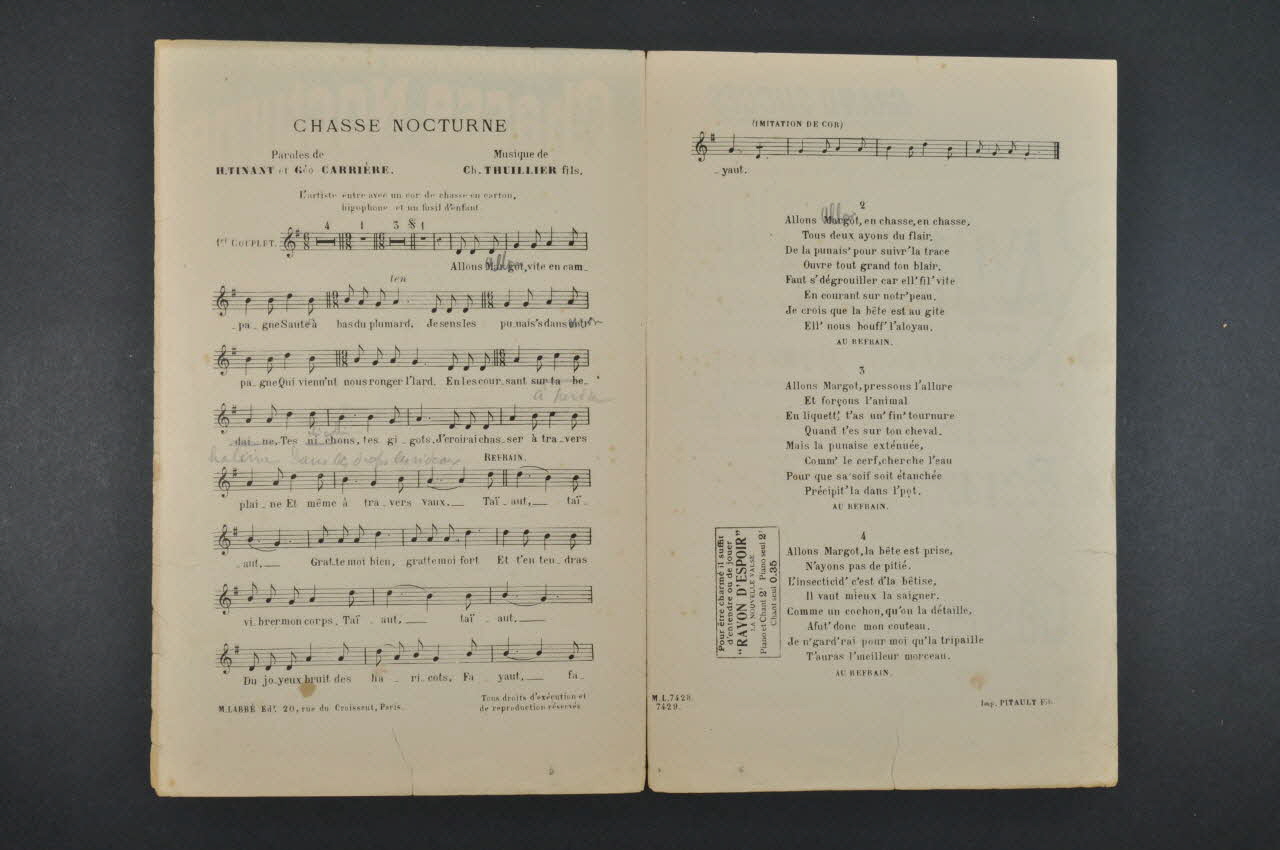 CHASSE NOCTURNE
Paroles de
H.TINANT et Géo CARRIÈRE.
Musique de
Ch. THUILLIER fils.
L'artiste entre avec un cor de chasse en carton,
bigophone et un fusil d'enfant.
4 1 3 1
1er COUPLET.
Allons Margot, vite en cam_
allon
ten
_pa_gne Saute à bas du plumard, Je sens les pu_nais's dans
pa_gne Qui vienn'nt nous ronger l'lard. En les cour_sant sur ta be_
_dai_ne, Tes ni_chons, tes gi_gots, J'croirai chas_ser à tra_vers
dans les
REFRAIN.
plai_ne Et même à tra_vers vaux.__ Taï_aut,__ taï_
_aut,__ Grat_te moi bien, gratte moi fort Et t'en ten_dras
vi_brer mon corps, Taï_aut,__ taï_aut,__
Du jo_yeux bruit des ha_ri_cots, Fa_yaut,__ fa_
M.LABBÉ Edr. 20, rue du Croissant, Paris.
Tous droits d'exécution et
de reproduction réservés
(IMITATION DE COR)
_yaut.
2
allon
Allons Margot, en chasse, en chasse,
Tous deux ayons du flair,
De la punais' pour suivr' la trace
Ouvre tout grand ton blair.
Faut s'dégrouiller car ell' fil' vite
En courant sur notr' peau.
Je crois que la bête est au gite
Ell' nous bouff' l'aloyau.
AU REFRAIN.
3
Allons Margot, pressons l'allure
Et forçons l'animal
En liquett', t'as un' fin' tournure
Quand t'es sur ton cheval.
Mais la punaise exténuée,
Comm' le cerf, cherche l'eau
Pour que sa soif soit étanchée
Précipit' la dans l'pot.
AU REFRAIN.
4
Allons Margot, la bête est prise,
N'ayons pas de pitié.
L'insecticid' c'est d'la bêtise,
Il vaut mieux la saigner.
Comme un cochon, qu'on la détaille,
Afut' donc mon couteau.
Je n'gard'rai pour moi qu'la tripaille
T'auras l'meilleur morceau.
AU REFRAIN.
Pour être charmé il suffit
d'entendre ou de jouer
"RAYON D'ESPOIR"
LA NOUVELLE VALSE
Piano et Chant 2f Piano seul 2f
Chant seul 0.35
M.L.7428.
7429.
Imp. PITAULT